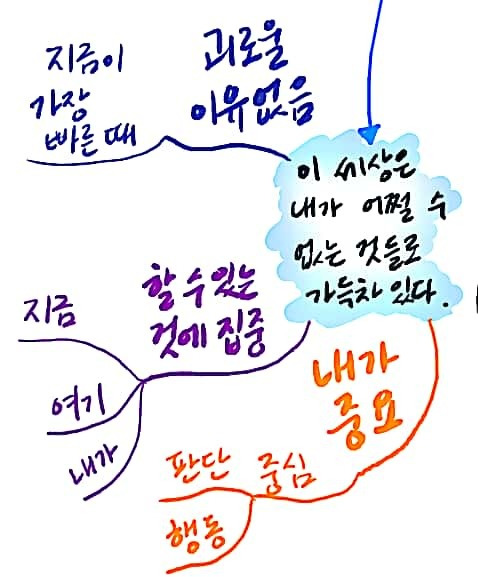 지금이
가장
빠른 때
괴로울
이유없음
이 세상은
내가 어쩔 수
없는 것들로
가득차 있다.
할 수 있는
것에 집중
지금
여기
내가
내가
중요
중심
판단
행동